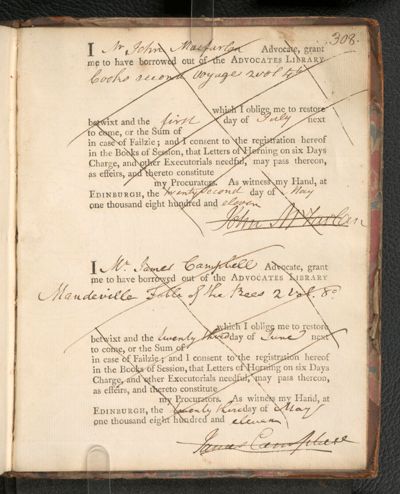 308.
I Mr John Macfarlan Advocate, grant
me to have borrowed out of the ADVOCATES LIBRARY
Cooks second voyage 2 vol 4to
which I oblige me to restore
betwixt and the first day of July next
to come, or the Sum of
in case of Failzie; and I consent to the registration hereof
in the Books of Session, that Letters of Horning on six Days
Charge, and other Executorials needful, may pass thereon,
as effeirs, and thereto constitute
my Procurators. As witness my Hand, at
EDINBURGH, the twenty second day of May
one thousand eight hundred and eleven
John McFarlan
I Mr. James Campbell Advocate, grant
me to have borrowed out of the ADVOCATES LIBRARY
Mandeville Fable of the Bees 2 vol. 8o
which I oblige me to restore
betwixt and the twenty third day of June next
to come, or the Sum of
in case of Failzie; and I consent to the registration hereof
in the Books of Session, that Letters of Horning on six Days
Charge, and other Executorials needful, may pass thereon,
as effeirs, and thereto constitute
my Procurators. As witness my Hand, at
EDINBURGH, the twenty third day of May
one thousand eight hundred and eleven
James Campbell